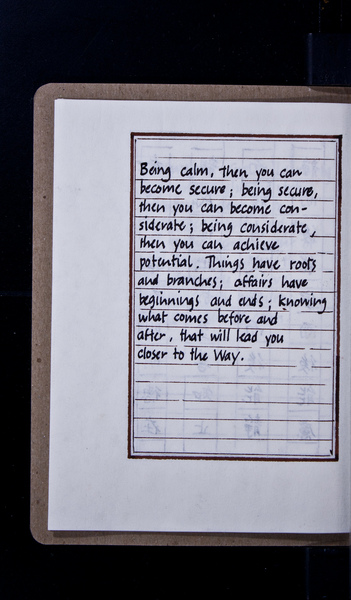 Being calm, then you can
become secure; being secure,
then you can become con-
siderate; being considerate,
then you can achieve
potential. Things have roots
and branches; affairs have
beginnings and ends; knowing
what comes before and
after, that will lead you
closer to the Way.